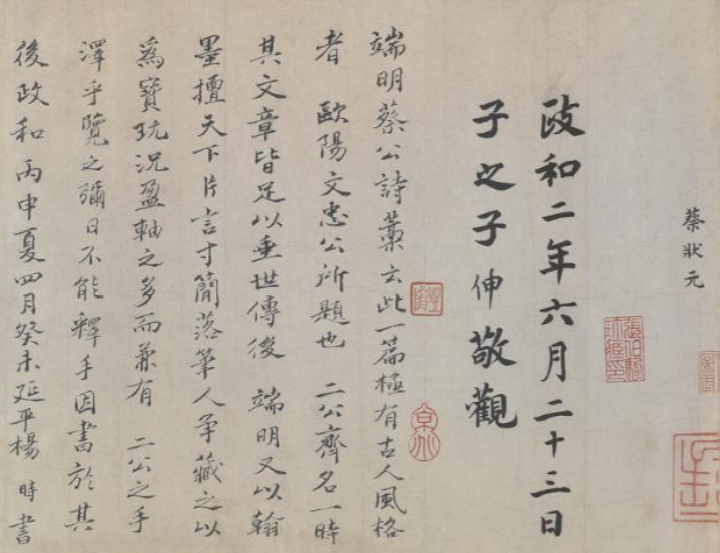 蔡狀元
政和二年六月二十三日
子之子伸敬觀
端明蔡公詩藁云此一篇極有古人風格
者 歐陽文忠公所題也 二公齊名一時
其文章皆足以垂世傳後 端明又以翰
墨擅天下片言寸簡落筆人爭藏之以
為寶玩況盈軸之多而兼有 二公之手
澤乎覽之彌日不能釋手因書於其
後政和丙申夏四月癸未延平楊 時書
張伯駒
珍藏印